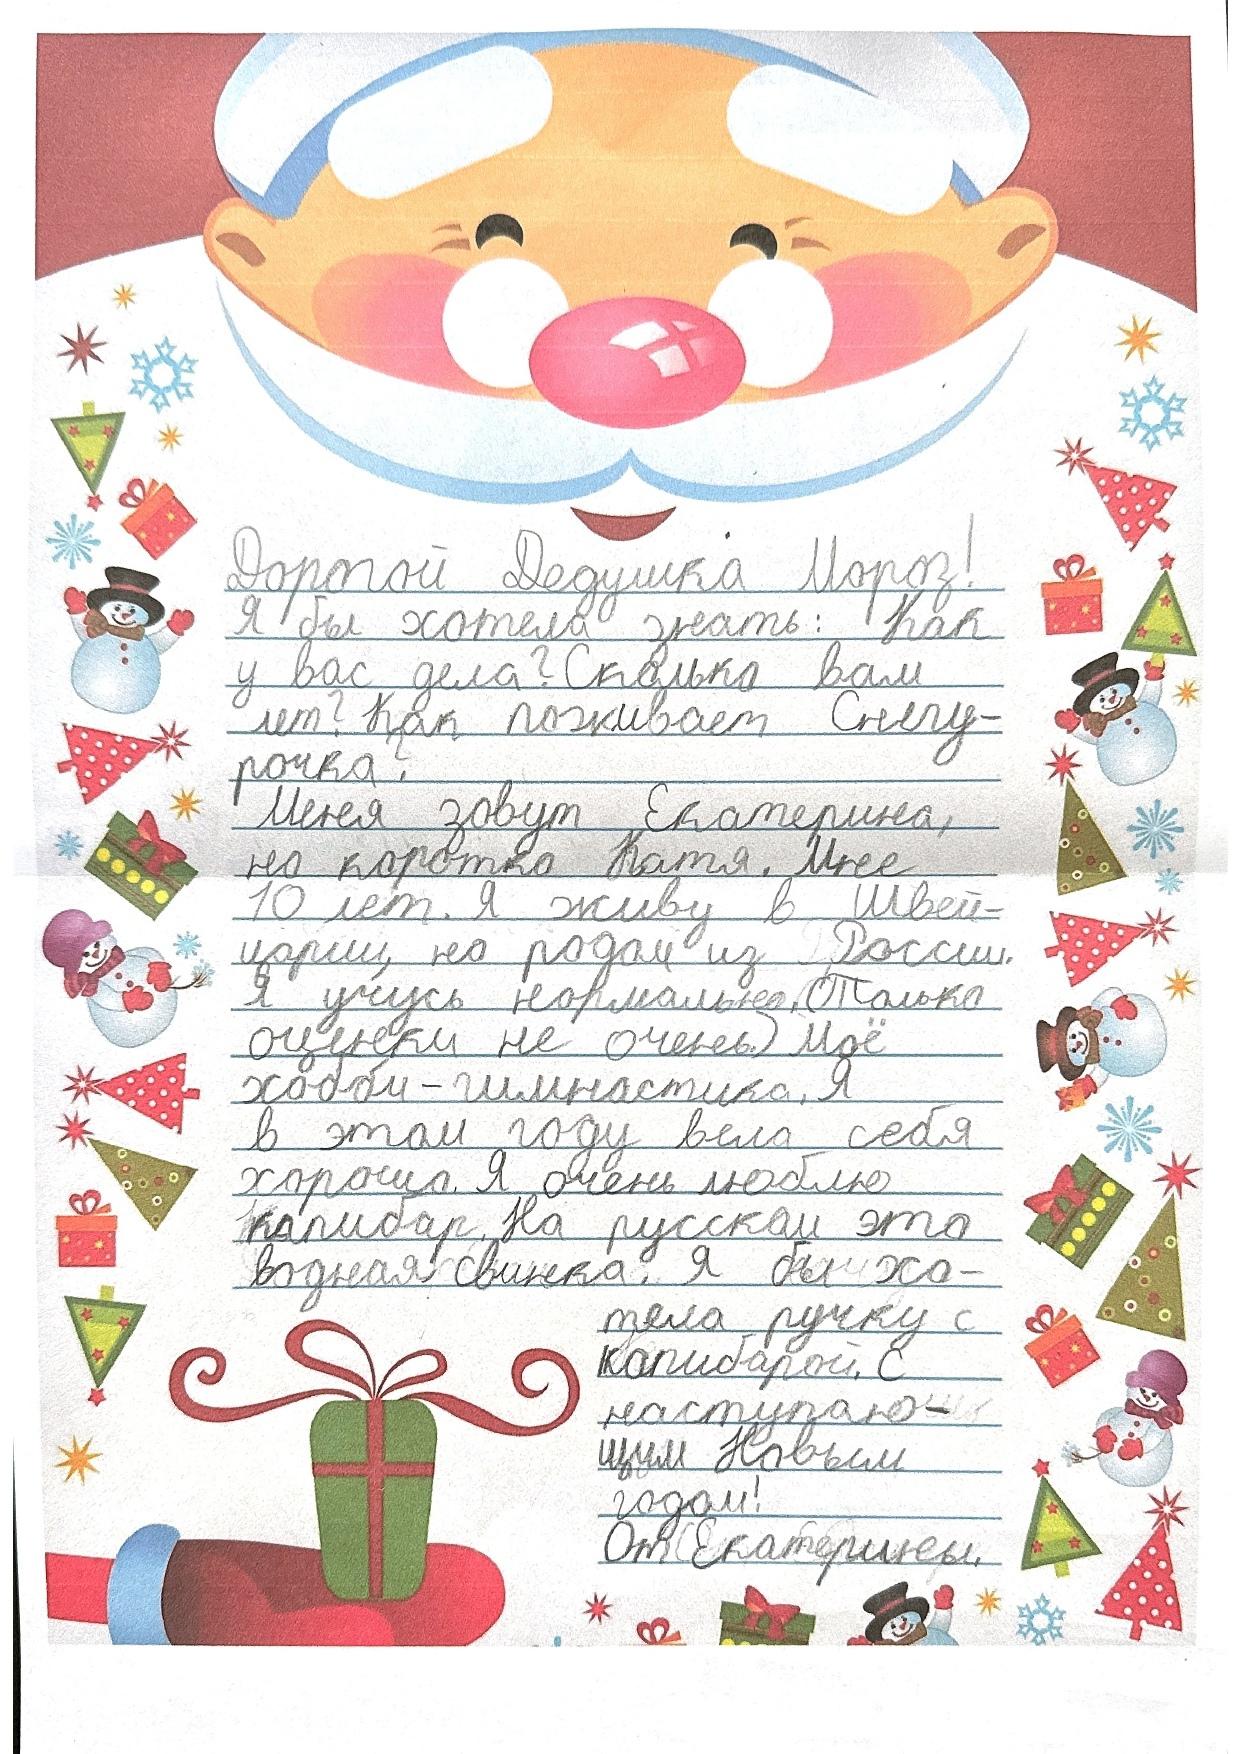 Дорогой Дедушка Мороз!
Я бы хотела знать: Как
у вас дела? Сколько вам
лет? Как поживает Снегу-
рочка?
Меня зовут Екатерина,
но коротко Катя. Мне
10 лет. Я живу в Швей-
царии, но родом из России.
Я учусь нормально. (Только
оценки не очень.) Моё
хобби - гимнастика. Я
в этом году вела себя
хорошо. Я очень люблю
капибар. На русском это
водная свинка. Я бы хо-
тела ручку с
капибарой. С
наступаю-
щим Новым
годом!
От Екатерины.